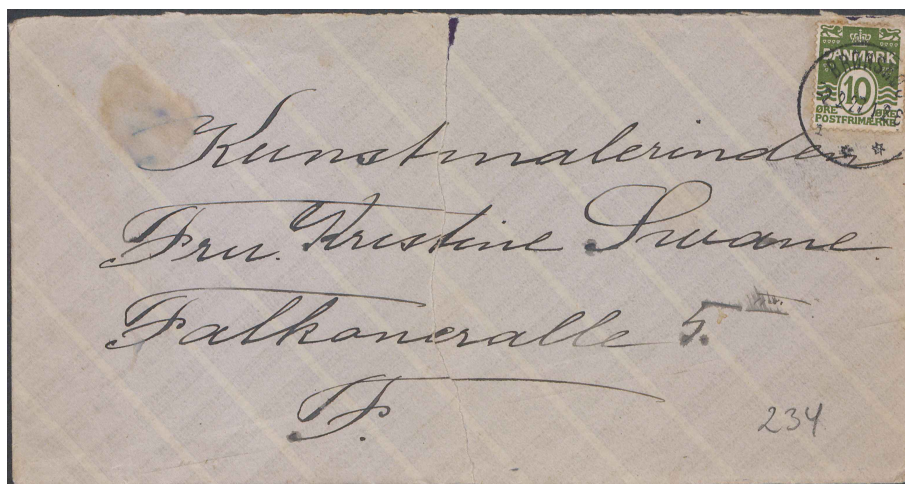 DANMARK
10
ØRE ØRE
POSTFRIMÆRKE
Kunstmalerinden
Fru. Kristine Swane.
Falkoneralle 5.
F.
234